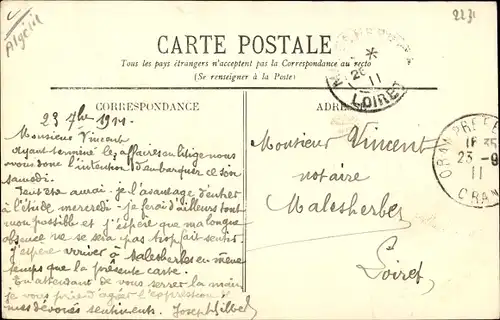 Algérie
2231
CARTE POSTALE
Tous les pays étrangers n'acceptent pas la Correspondance au recto
(Se renseigner à la Poste)
CORRESPONDANCE
23 7bre 1911.
Monsieur Vincent
Ayant terminé les affaires en litige nous
avons donc l'intention d'embarquer ce soir
samedi.
Peut être aurai-je l'avantage d'entrer
à l'étude mercredi - je ferai d'ailleurs tout
mon possible et j'espère que ma longue
absence ne se sera pas trop fait sentir.
J'espère arriver à Malesherbes en même
temps que la présente carte.
En attendant de vous serrer la main
je vous prie d'agréer l'expression de
mes dévoués sentiments. Joseph
ADRESSE
Monsieur Vincent
notaire
Malesherbes
Loiret
26
11
LOIRET
ORAN PRÉFECT
18 35
23 -9
11
ORAN